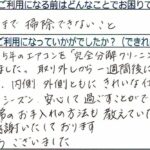 ご利用になる前はどんなことでお困りで
まで掃除できないこと
ご利用になっていかがでしたか？（できれ
5年のエアコンを「完全分解クリーニン
ました。取り外しから一週間後に
、内側、外側ともに きれいな仕
シーズン、安心して過ごすことがで
のお手入れの方法も教えていた
感謝いたしております
うございました